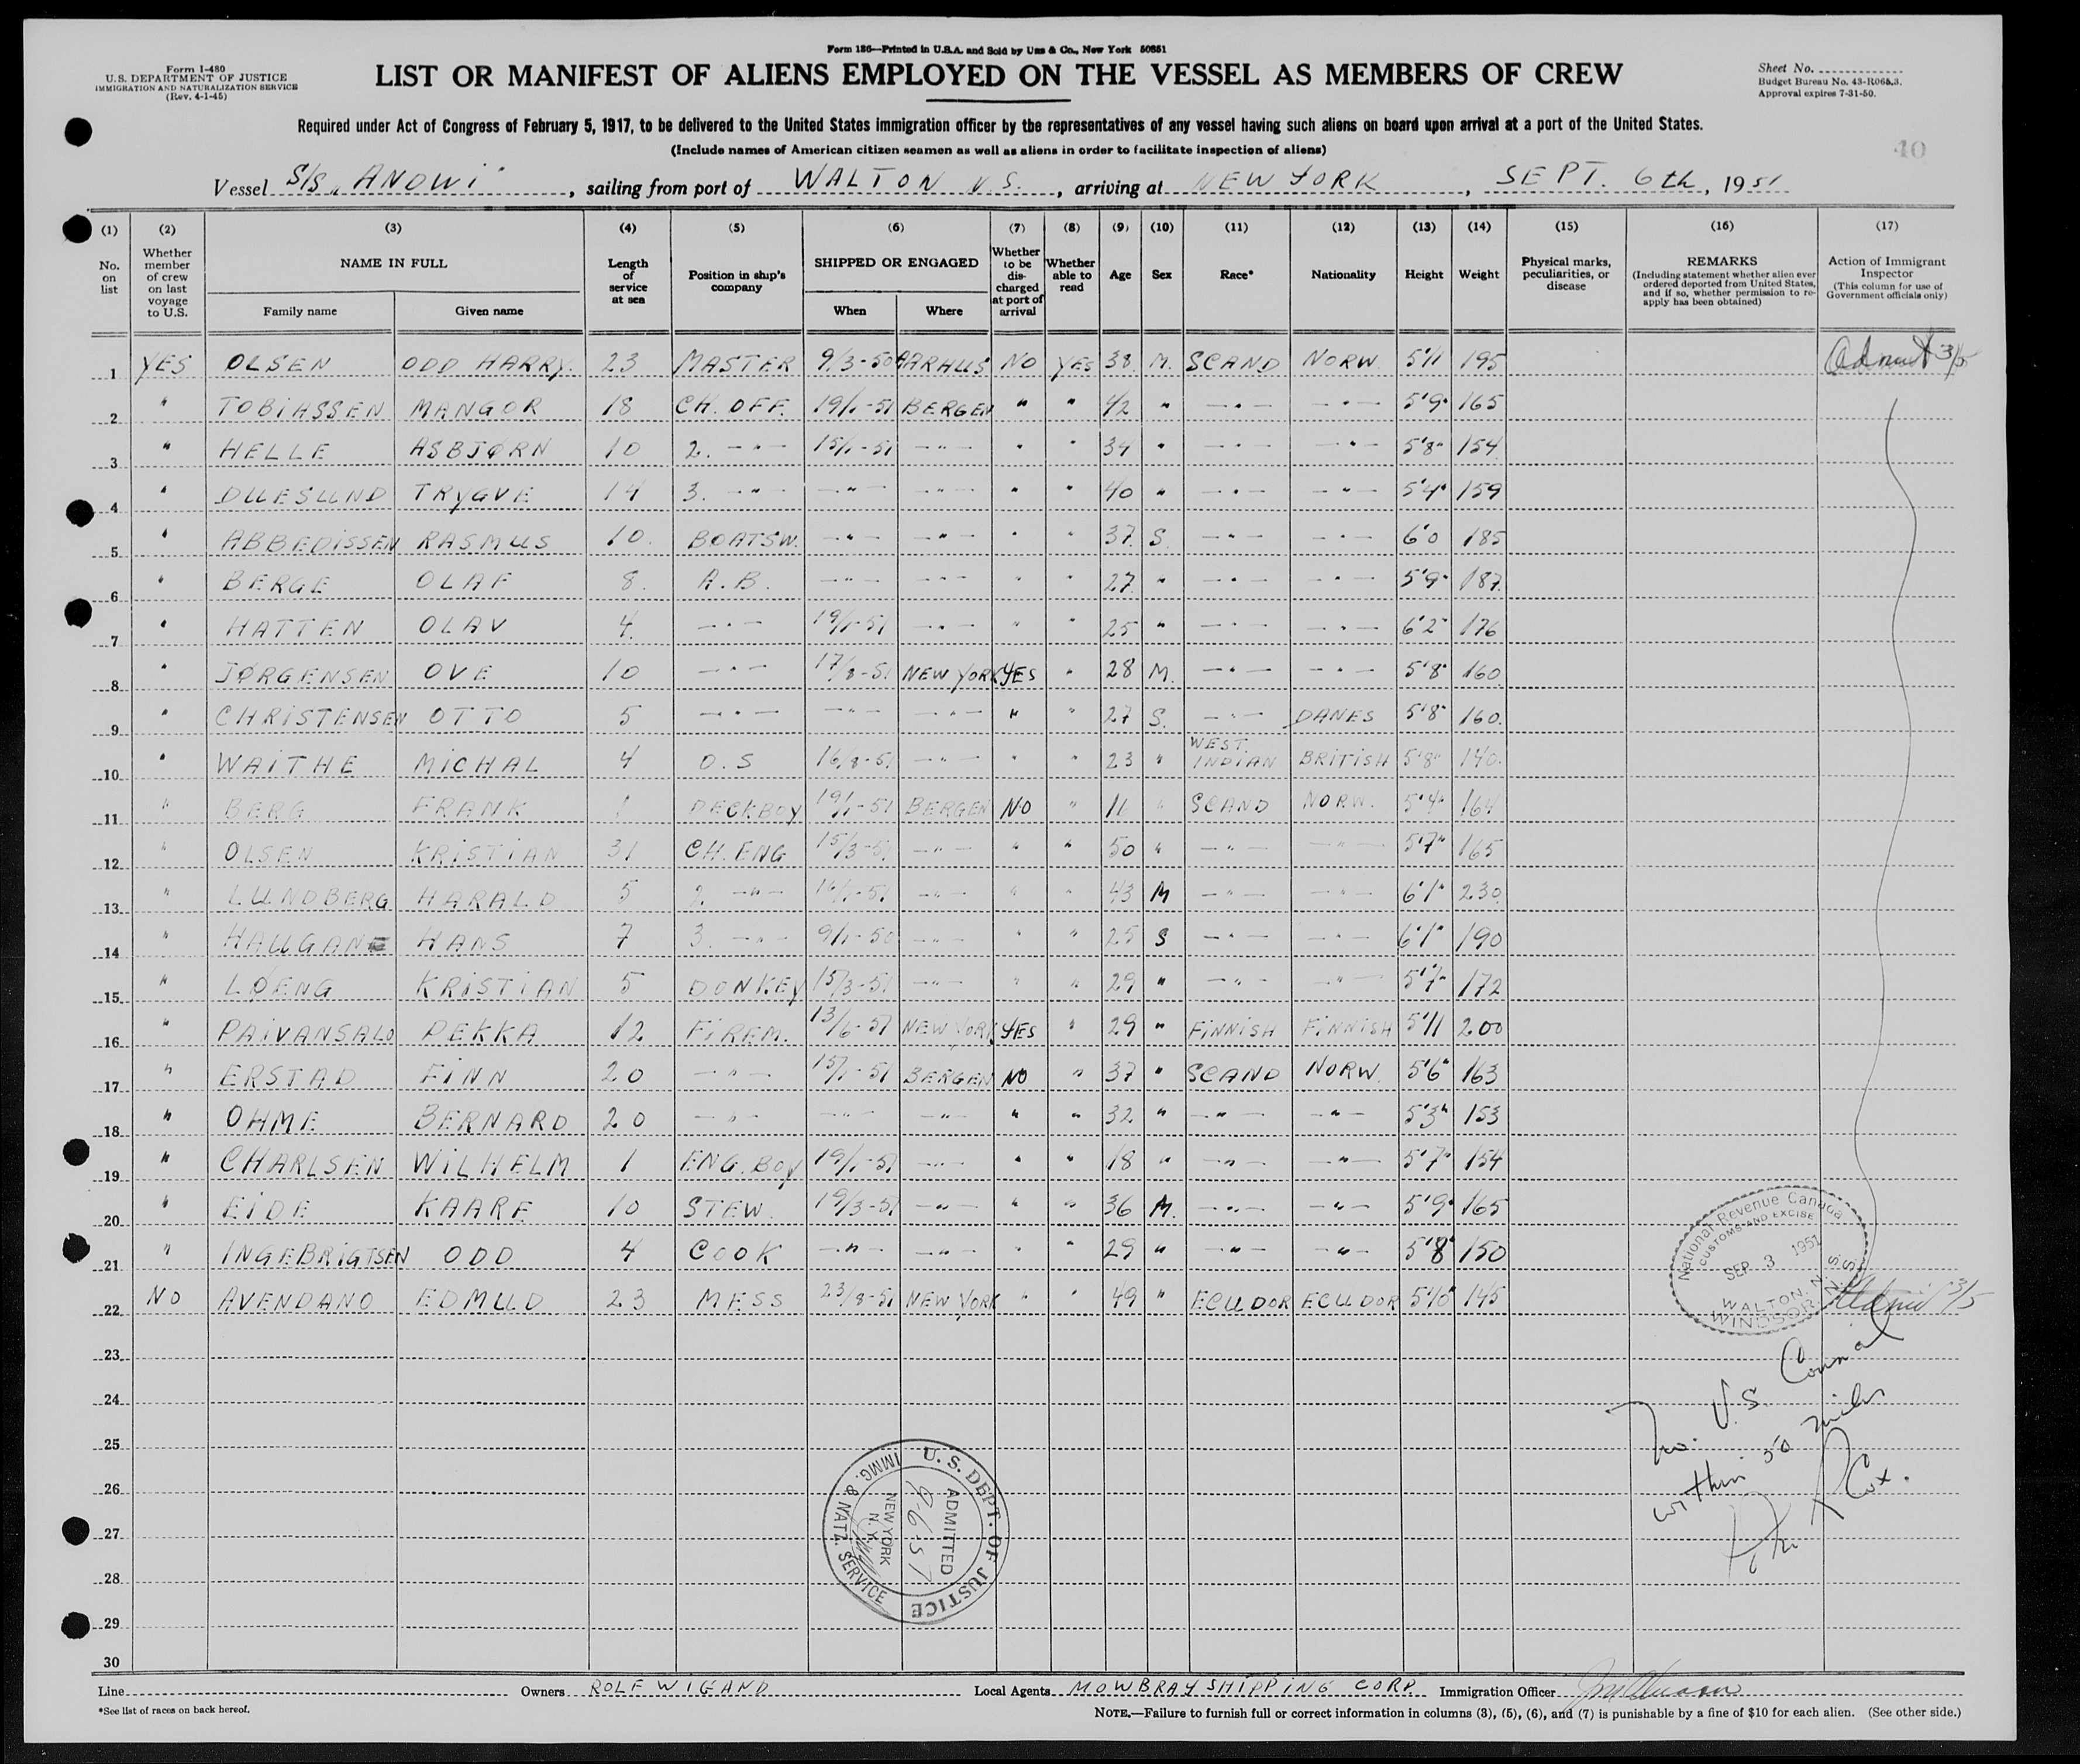 Form 186—Printed in U.S.A. and Sold by Unz & Co., New York 50851
Form I-480
U.S. DEPARTMENT OF JUSTICE
IMMIGRATION AND NATURALIZATION SERVICE
(Rev. 4-1-45)
LIST OR MANIFEST OF ALIENS EMPLOYED ON THE VESSEL AS MEMBERS OF CREW
Sheet No.
Budget Bureau No. 43-R065.3.
Approval expires 7-31-50.
Required under Act of Congress of February 5, 1917, to be delivered to the United States immigration officer by the representatives of any vessel having such aliens on board upon arrival at a port of the United States.
(Include names of American citizen seamen as well as aliens in order to facilitate inspection of aliens)
40
Vessel S/S "ANOWI", sailing from port of WALTON N.S., arriving at NEW YORK, SEPT. 6th, 1951
(1) (2) (3) (4) (5) (6) (7) (8) (9) (10) (11) (12) (13) (14) (15) (16) (17)
No. on list
Whether member of crew on last voyage to U.S.
NAME IN FULL
Family name Given name
Length of service at sea
Position in ship's company
SHIPPED OR ENGAGED
When Where
Whether to be discharged at port of arrival
Whether able to read
Age Sex Race* Nationality Height Weight
Physical marks, peculiarities, or disease
REMARKS
(Including statement whether alien ever ordered deported from United States, and if so, whether permission to reapply has been obtained)
Action of Immigrant Inspector
(This column for use of Government officials only)
1 YES OLSEN ODD HARRY. 23 MASTER 9/3-50 AARHUS NO YES 38 M. SCAND NORW. 5'11 195 Admit 3/5
2 " TOBIASSEN MANGOR 18 CH. OFF. 19/1-51 BERGEN " " 42 " —"— —"— 5'9" 165
3 " HELLE ASBJØRN 10 2. —"— 15/1-51 —"— " " 34 " —"— —"— 5'8" 154
4 " DUESUND TRYGVE 14 3. —"— —"— —"— " " 40 " —"— —"— 5'4" 159
5 " ABBEDISSEN RASMUS 10. BOATSW. —"— —"— " " 37 S. —"— —"— 6'0 185
6 " BERGE OLAF 8. A.B. —"— —"— " " 27 " —"— —"— 5'9" 187
7 " HATTEN OLAV 4. —"— 19/1-51 —"— " " 25 " —"— —"— 6'2" 176
8 " JØRGENSEN OVE 10 —"— 17/8-51 NEW YORK YES " 28 M. —"— —"— 5'8" 160
9 " CHRISTENSEN OTTO 5 —"— —"— —"— " " 27 S. —"— DANES 5'8" 160.
10 " WAITHE MICHAL 4 O.S 16/8-51 —"— " " 23 " WEST. INDIAN BRITISH 5'8" 140.
11 " BERG FRANK 1 DECKBOY 19/1-51 BERGEN NO " " SCAND NORW. 5'4" 164
12 " OLSEN KRISTIAN 31 CH. ENG 15/3-51 —"— " " 50 " —"— —"— 5'7" 165
13 " LUNDBERG HARALD 5 2 —"— 16/1-51 —"— " " 43 M —"— —"— 6'1" 230
14 " HAUGAN HANS 7 3. —"— 9/1-50 —"— " " 25 S —"— —"— 6'1" 190
15 " LØENG KRISTIAN 5 DONKEY 15/3-51 —"— " " 29 " —"— —"— 5'7" 172
16 " PAIVANSALO PEKKA 12 FIREM. 13/6-51 NEW YORK YES " 29 " FINNISH FINNISH 5'11 200
17 " ERSTAD FINN 20 —"— 15/1-51 BERGEN NO " 37 " SCAND NORW. 5'6" 163
18 " OHME BERNARD 20 —"— —"— —"— " " 32 " —"— —"— 5'3" 153
19 " CHARLSEN WILHELM 1 ENG. BOY 19/1-51 —"— " " 18 " —"— —"— 5'7" 154
20 " EIDE KAARE 10 STEW. 19/3-51 —"— " " 36 M. —"— —"— 5'9" 165
21 " INGEBRIGTSEN ODD 4 COOK —"— —"— " " 29 " —"— —"— 5'8" 150
22 NO AVENDANO EDMUD 23 MESS 23/8-51 NEW YORK " " 49 " ECUDOR ECUDOR 5'10" 145 Admit 3/5
23
24
25
26
27
28
29
30
National Revenue Canada
CUSTOMS AND EXCISE
SEP 3 1951
WALTON, N.S.
WINDSOR, N.S.
No. U.S. Consul
within 50 miles
Cox.
U.S. DEPT. OF JUSTICE
IMMG. & NATZ. SERVICE
ADMITTED
9-6-51
NEW YORK
N.Y.
Line Owners ROLF WIGAND Local Agents MOWBRAY SHIPPING CORP. Immigration Officer
*See list of races on back hereof.
NOTE.—Failure to furnish full or correct information in columns (3), (5), (6), and (7) is punishable by a fine of $10 for each alien. (See other side.)